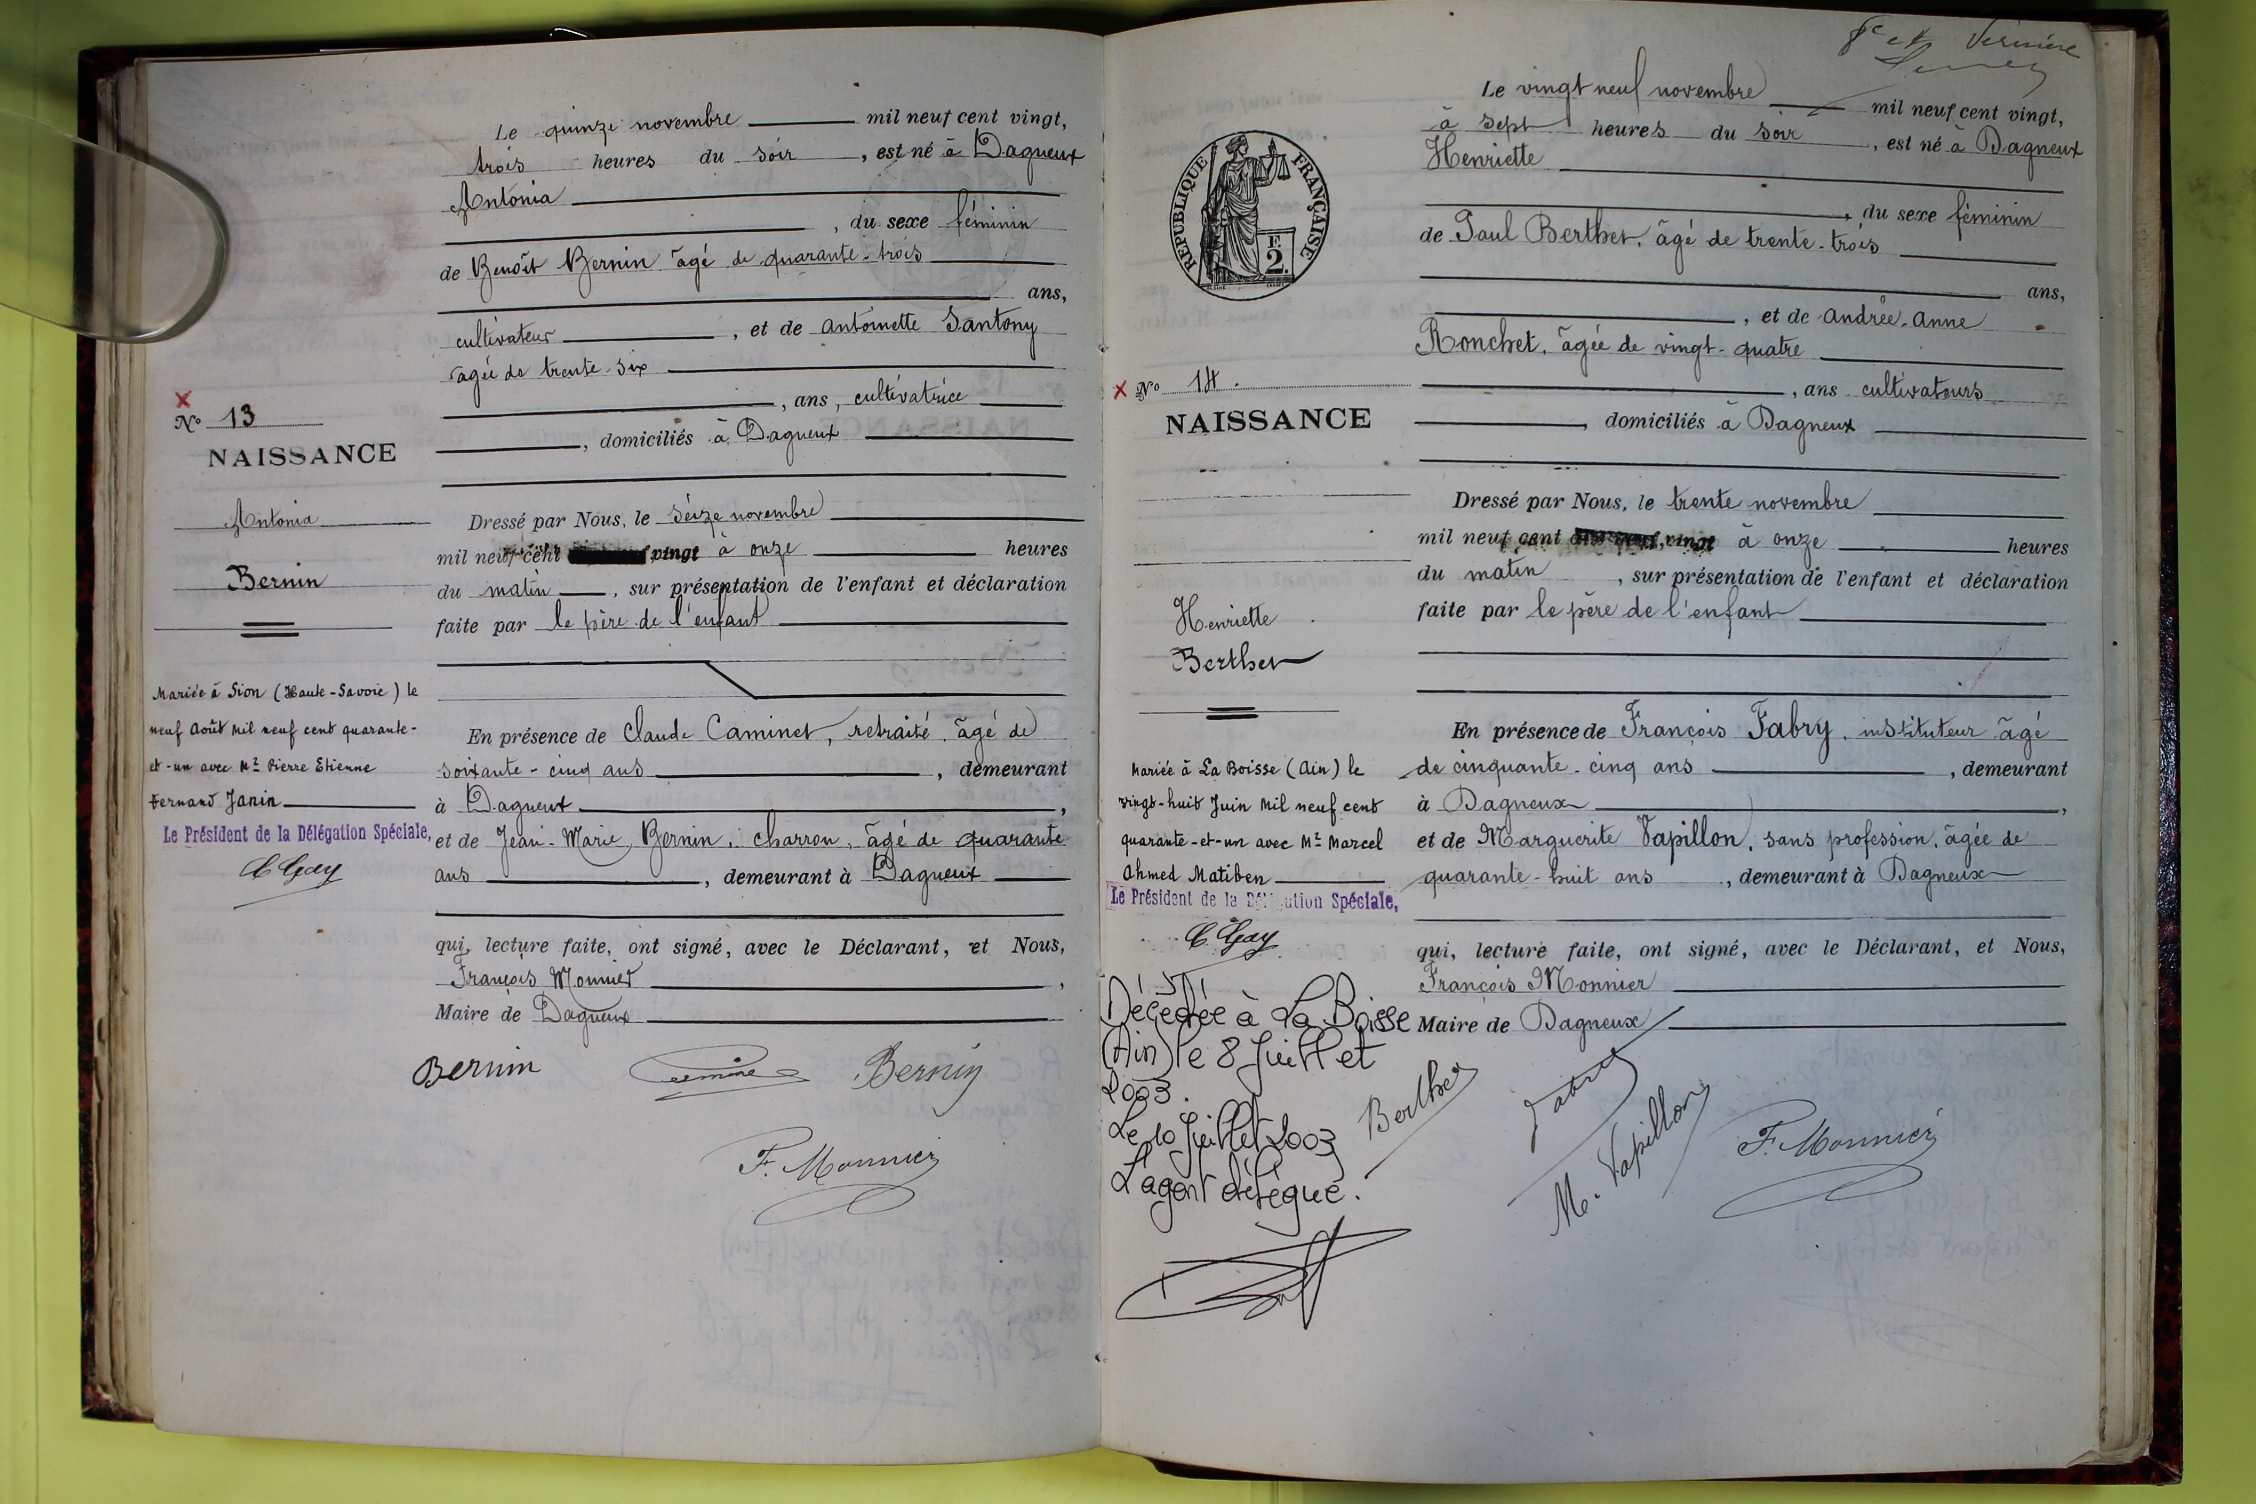 Le quinze novembre mil neuf cent vingt,
trois heures du soir, est né à Dagneux
Antonia
, du sexe féminin
de Benoît Bernin âgé de quarante-trois
ans,
cultivateur, et de Antoinette Santony
âgée de trente-six
, ans, cultivatrice
, domiciliés à Dagneux
Nº 13
NAISSANCE
Antonia
Bernin
Dressé par Nous, le seize novembre
mil neuf cent vingt à onze heures
du matin, sur présentation de l'enfant et déclaration
faite par le père de l'enfant
Mariée à Sion (Haute-Savoie) le
neuf Août mil neuf cent quarante-
et-un avec Mr Pierre Etienne
Fernand Janin
Le Président de la Délégation Spéciale,
C Gay
En présence de Claude Caminet, retraité, âgé de
soixante-cinq ans, demeurant
à Dagneux,
et de Jean-Marie Bernin, charron, âgé de quarante
ans, demeurant à Dagneux
qui, lecture faite, ont signé, avec le Déclarant, et Nous,
François Monnier,
Maire de Dagneux
Bernin Bernin
F. Monnier
Verniere
Le vingt neuf novembre mil neuf cent vingt,
à sept heures du soir, est né à Dagneux
Henriette
, du sexe féminin
de Paul Berthet, âgé de trente-trois
ans,
, et de Andrée-Anne
Ronchet, âgée de vingt-quatre
, ans cultivateurs
, domiciliés à Dagneux
RÉPUBLIQUE FRANÇAISE
F.
2.
Nº 14.
NAISSANCE
Henriette
Berthet
Dressé par Nous, le trente novembre
mil neuf cent vingt à onze heures
du matin, sur présentation de l'enfant et déclaration
faite par le père de l'enfant
Mariée à La Boisse (Ain) le
vingt-huit Juin mil neuf cent
quarante-et-un avec Mr Marcel
Ahmed Matiben
Le Président de la Délégation Spéciale,
C. Gay
Décédée à La Boisse
(Ain) le 8 Juillet
2003.
Le 10 Juillet 2003
L'agent délégué.
En présence de François Fabry, instituteur âgé
de cinquante-cinq ans, demeurant
à Dagneux,
et de Marguerite Vapillon, sans profession, âgée de
quarante-huit ans, demeurant à Dagneux
qui, lecture faite, ont signé, avec le Déclarant, et Nous,
François Monnier
Maire de Dagneux
Berthet Fabry
M. Vapillon F. Monnier